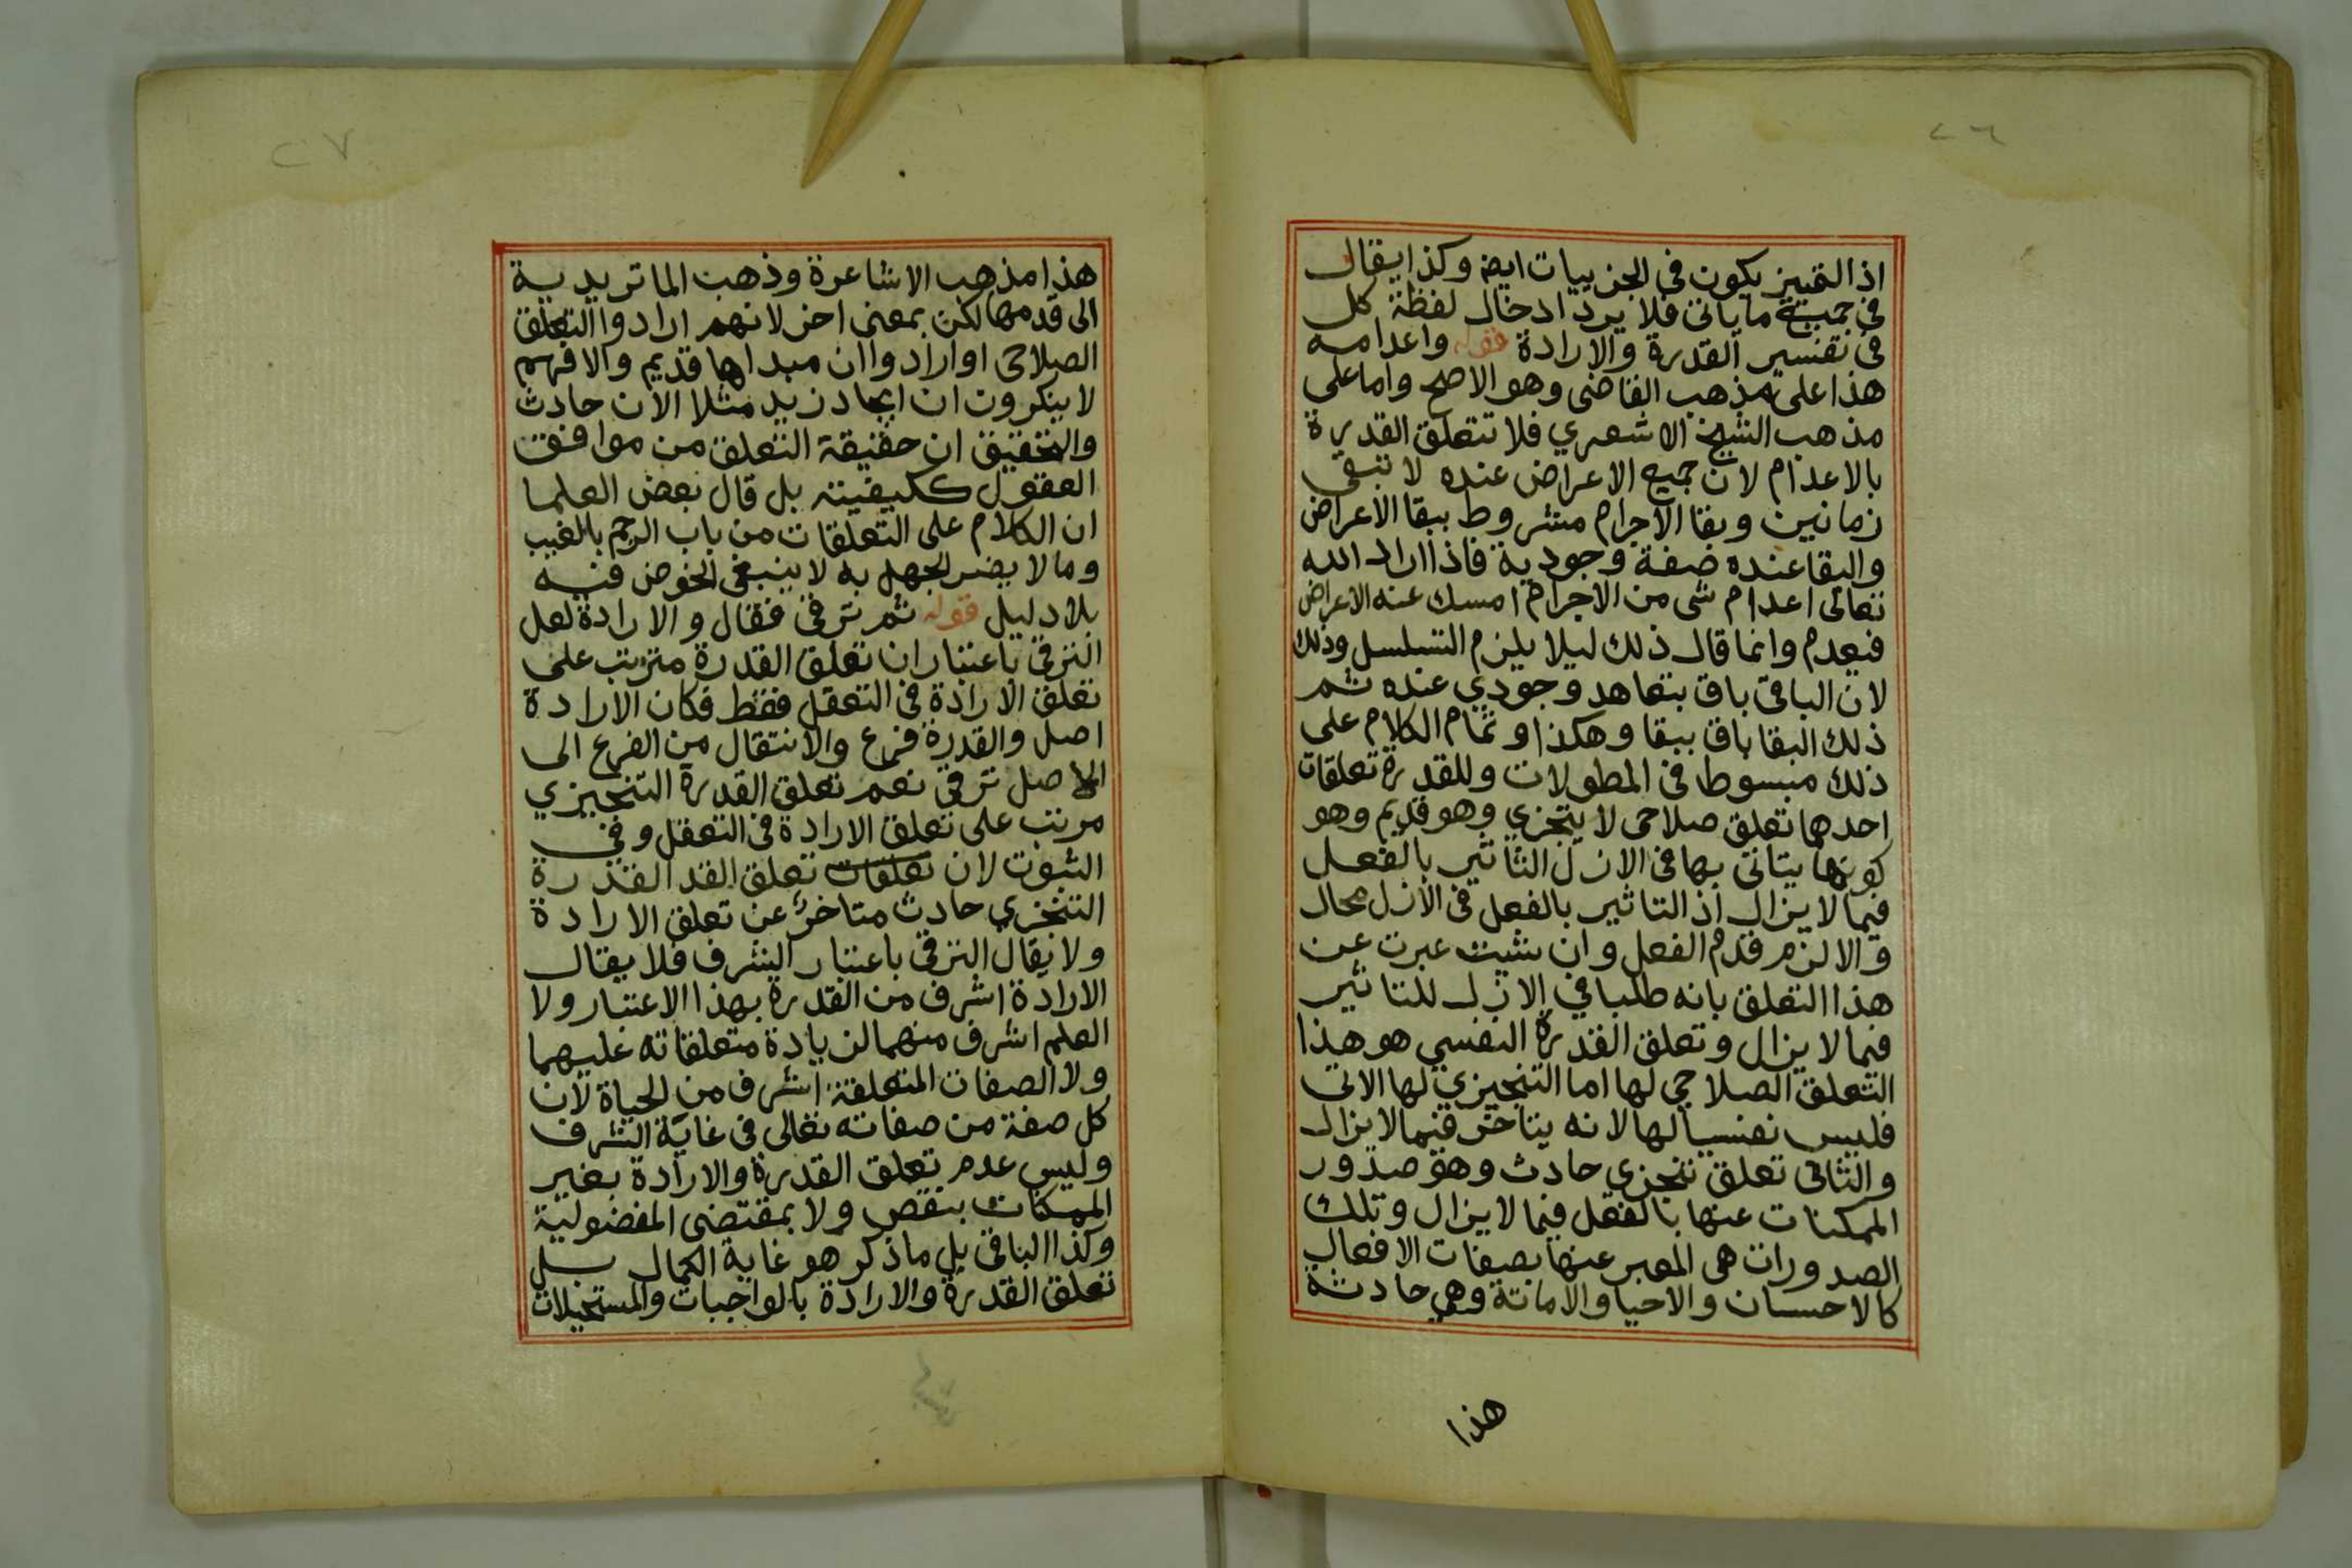 ٢٦
اذ التمييز يكون في الجزييات ايضا وكذا يقال
في جميع ما ياتي فلا يرد ادخال لفظة كل
في تفسير القدرة والارادة قوله واعدامه
هذا على مذهب القاضي وهو الاصح واما على
مذهب الشيخ الاشعري فلا تتعلق القدرة
بالاعدام لان جميع الاعراض عنده لا تبقى
زمانين وبقا الاجرام مشروط ببقا الاعراض
والبقا عنده صفة وجودية فاذا اراد الله
تعالى اعدام شي من الاجرام امسك عنه الاعراض
فيعدم وانما قال ذلك ليلا يلزم التسلسل وذلك
لان الباقي باق ببقا هو وجودي عنده ثم
ذلك البقا باق ببقا وهكذا وتمام الكلام على
ذلك مبسوط في المطولات وللقدرة تعلقات
احدهما تعلق صلاحي لا يتجزي وهو قديم وهو
كونها يتاتى بها في الازل التاثير بالفعل
فيما لا يزال اذ التاثير بالفعل في الازل محال
والا لزم قدم الفعل وان شيت عبرت عن
هذا التعلق بانه طلبا في الازل للتاثير
فيما لا يزال وتعلق القدرة النفسي هو هذا
التعلق الصلاحي لها اما التنجيزي لها الاتي
فليس نفسيا لها لانه يتاخر فيما لا يزال
والثاني تعلق تنجزي حادث وهو صدور
الممكنات عنها بالفعل فيما لا يزال وتلك
الصدورات هي المعبر عنها بصفات الافعال
كالاحسان والاحيا والاماتة وهي حادثة
هذا
٢٧
هذا مذهب الاشاعرة وذهبت الماتريدية
الى قدمها لكن بمعنى اخر لانهم ارادوا التعلق
الصلاحي او ارادوا ان مبداها قديم والا فهم
لا ينكرون ان ايجاد زيد مثلا الان حادث
والتحقيق ان حقيقة التعلق من مواقف
العقول ككيفيته بل قال بعض العلما
ان الكلام على التعلقات من باب الرجم بالغيب
وما لا يضر الجهل به لا ينبغي الخوض فيه
بلا دليل قوله ثم ترقى فقال والارادة لعل
الترقي باعتبار ان تعلق القدرة مترتب على
تعلق الارادة في التعقل فقط فكان الارادة
اصل والقدرة فرع والانتقال من الفرع الى
الاصل ترقي نعم تعلق القدرة التنجيزي
مرتب على تعلق الارادة في التعقل وفي
الثبوت لان تعلقات تعلق القد القدرة
التنجزي حادث متاخر عن تعلق الارادة
ولا يقال الترقي باعتبار الشرف فلا يقال
الارادة اشرف من القدرة بهذا الاعتبار ولا
العلم اشرف منهما لزيادة متعلقاته عليهما
ولا الصفات المتعلقة اشرف من الحياة لان
كل صفة من صفاته تعالى في غاية الشرف
وليس عدم تعلق القدرة والارادة بغير
الممكنات بنقص ولا بمقتضى المفضولية
وكذا الباقي بل ما ذكر هو غاية الكمال بل
تعلق القدرة والارادة بالواجبات والمستحيلات